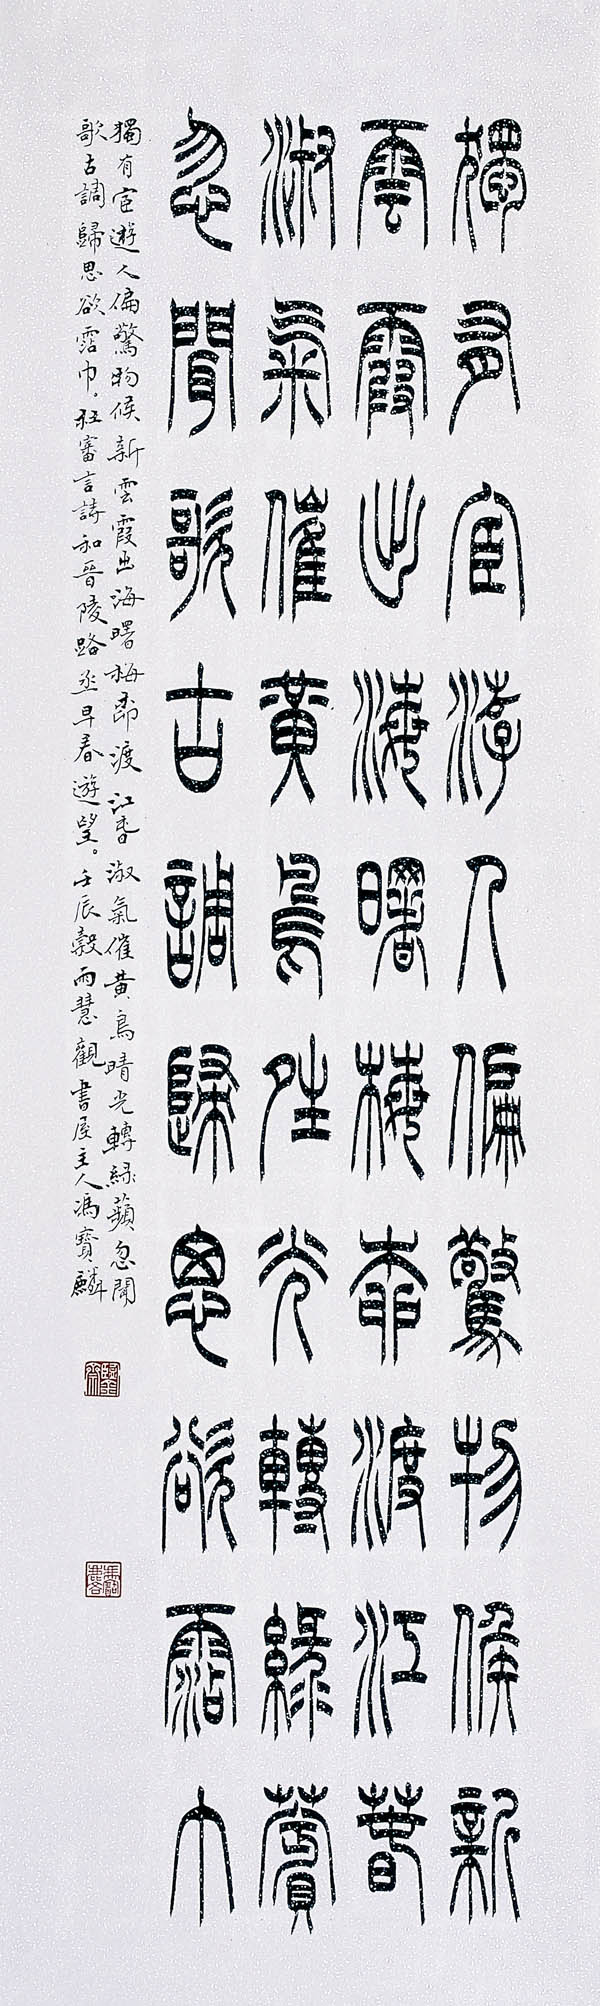 獨有宦游人偏驚物候新
雲霞出海曙梅柳渡江春
淑氣催黃鳥晴光轉綠蘋
忽聞歌古調歸思欲霑巾
獨有宦遊人偏驚物候新雲霞出海曙梅柳渡江春淑氣催黃鳥晴光轉綠蘋忽聞
歌古調歸思欲霑巾。杜審言詩和晉陵路丞早春遊望。壬辰穀雨慧觀書屋主人馮寶麟